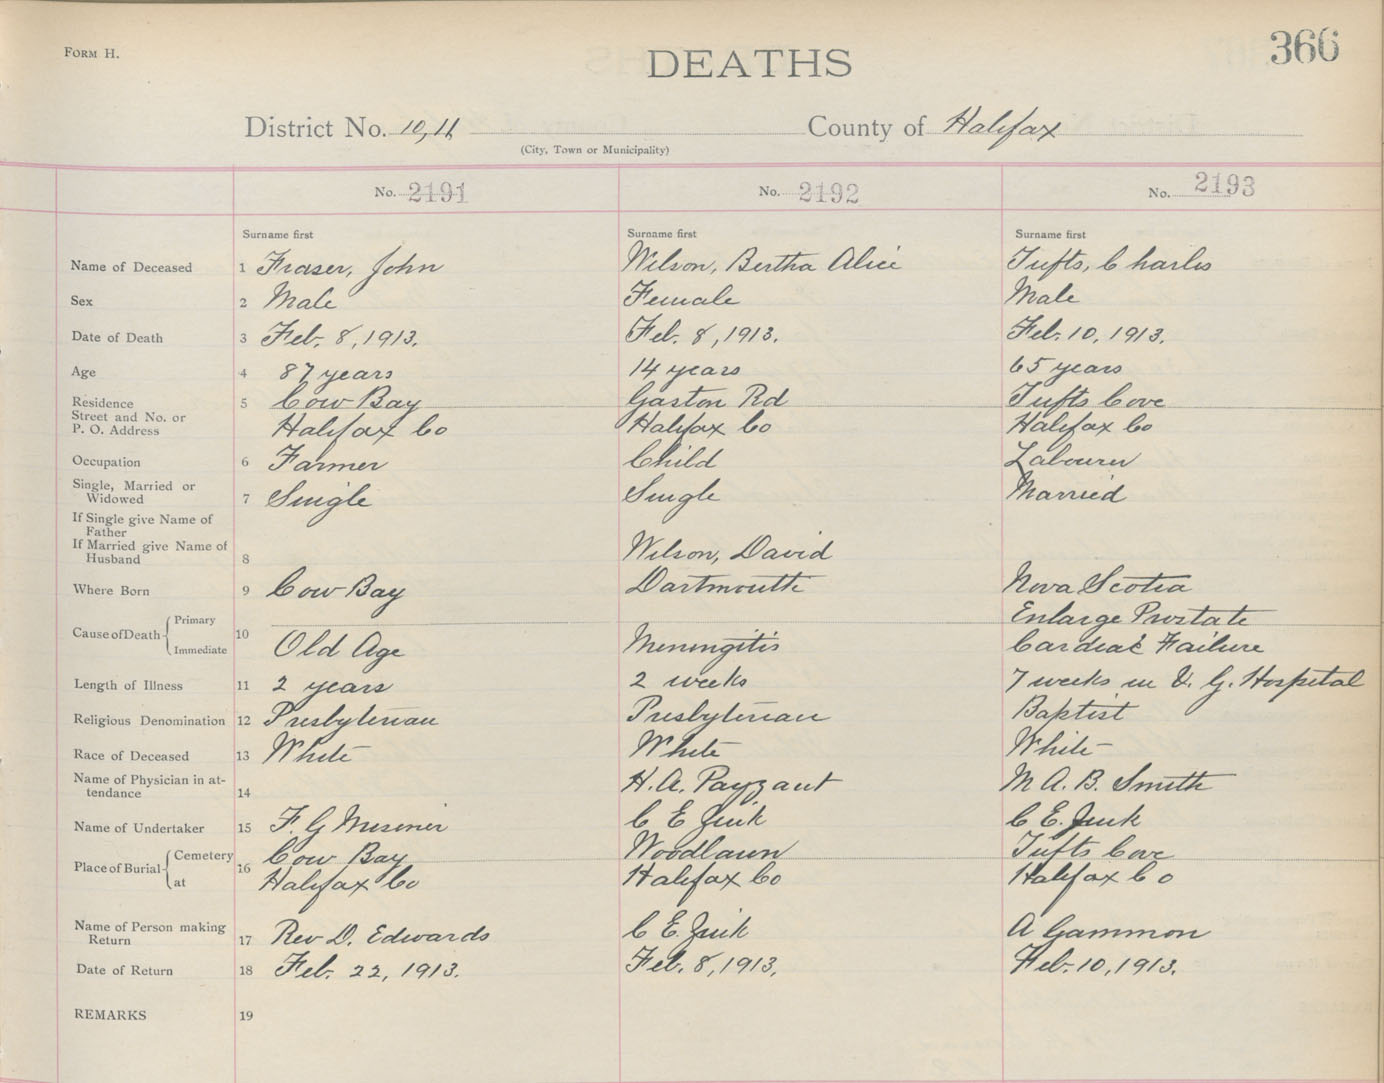 FORM H.
DEATHS
366
District No. 10, 11
County of Halifax
(City, Town or Municipality)
No. 2191
No. 2192
No. 2193
Surname first
Surname first
Surname first
Name of Deceased 1 Fraser, John
Wilson, Bertha Alice
Tufts, Charles
Sex 2 Male
Female
Male
Date of Death 3 Feb. 8, 1913.
Feb. 8, 1913.
Feb. 10, 1913.
Age 4 87 years
14 years
65 years
Residence
Street and No. or
P. O. Address
5 Cow Bay
Halifax Co
Gaston Rd
Halifax Co
Tufts Cove
Halifax Co
Occupation 6 Farmer
Child
Labourer
Single, Married or
Widowed
7 Single
Single
Married
If Single give Name of
Father
If Married give Name of
Husband
8
Wilson, David
Where Born 9 Cow Bay
Dartmouth
Nova Scotia
Cause of Death
Primary
Immediate
10
Old Age
Meningitis
Enlarge Prostate
Cardiac Failure
Length of Illness 11 2 years
2 weeks
7 weeks in V. G. Hospital
Religious Denomination 12 Presbyterian
Presbyterian
Baptist
Race of Deceased 13 White
White
White
Name of Physician in at-
tendance
14
H. A. Payzant
M A. B. Smith
Name of Undertaker 15 F. G
C E
C E.
Place of Burial
Cemetery
at
16
Cow Bay
Halifax Co
Woodlawn
Halifax Co
Tufts Cove
Halifax Co
Name of Person making
Return
17 Rev D. Edwards
C E
A Gammon
Date of Return 18 Feb. 22, 1913.
Feb. 8, 1913.
Feb. 10, 1913.
REMARKS 19